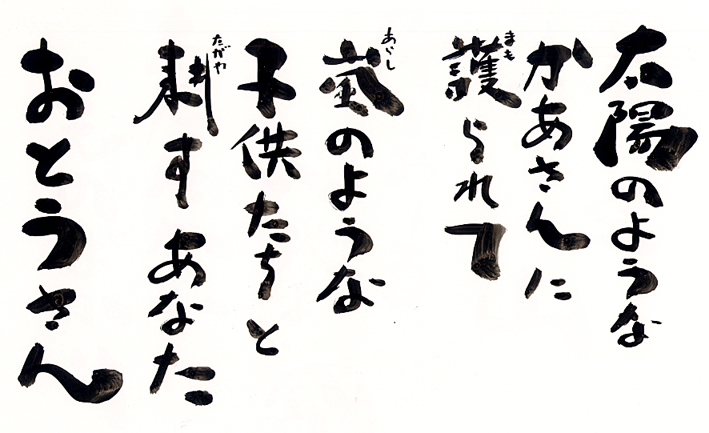 太陽のような
かあさんに
護られて
まも
嵐のような
あらし
子供たちと
耕す あなた
たがや
おとうさん